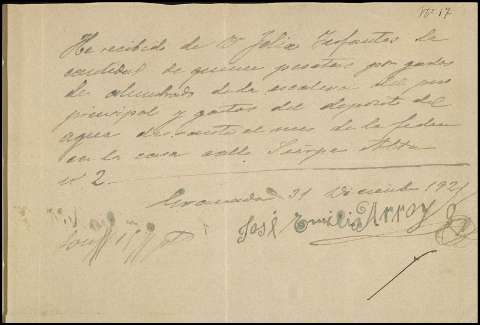 Nº 17
He recibido de D. Felix Infantes la
cantidad de quince pesetas por gastos
de alumbrado de la escalera del piso
principal y gastos del deposito del
agua durante el mes de la fecha
en la casa calle Sierpe Alta
nº 2.
Granada 31 Diciembre 192
José Emilio Arroy